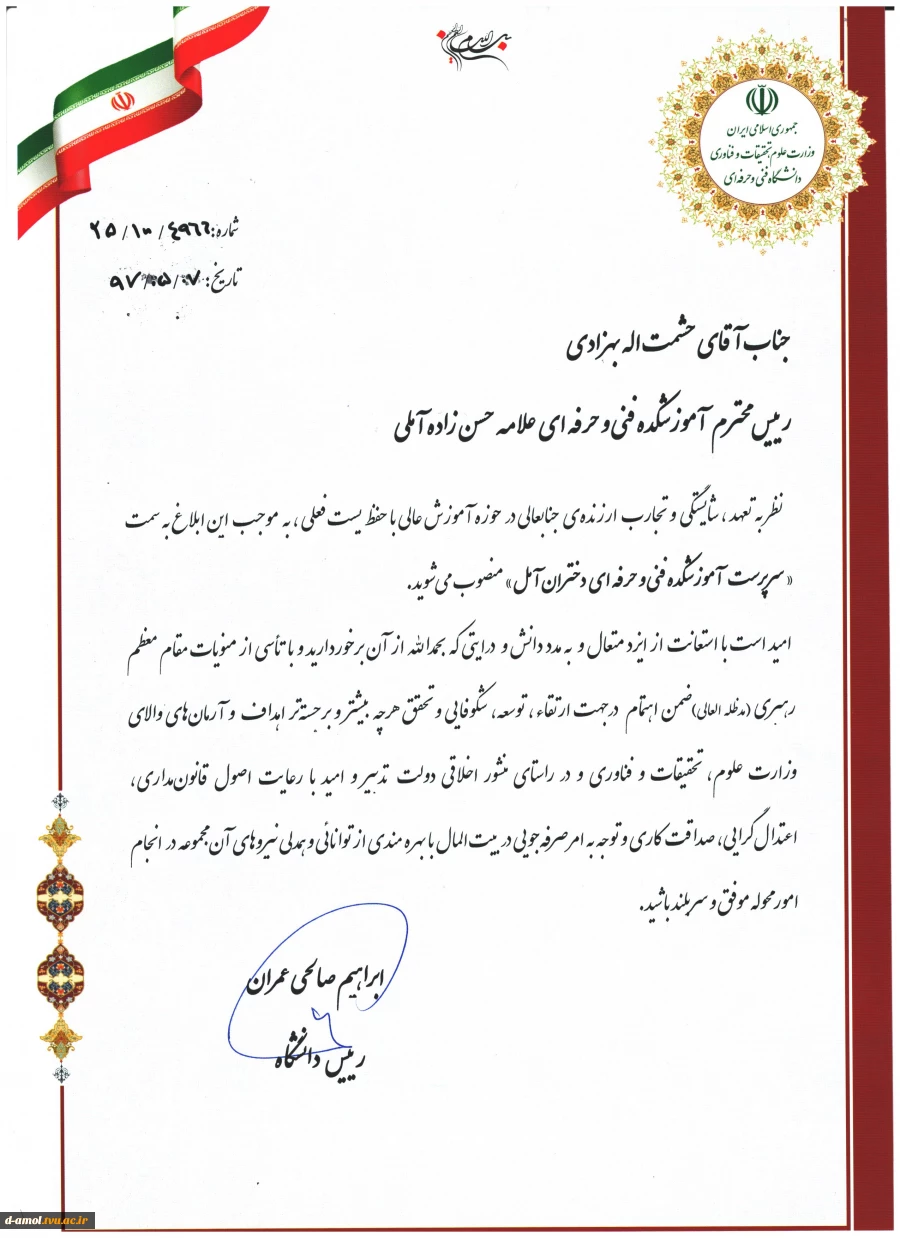 بسم الله الرحمن الرحیم
جمهوری اسلامی ایران
وزارت علوم تحقیقات و فناوری
دانشگاه فنی و حرفه ای
شماره: ۲۵/۱۰۰/۴۹۶۶
تاریخ: ۹۷/۰۵/۰۷
جناب آقای حشمت اله بهزادی
رییس محترم آموزشکده فنی و حرفه ای علامه حسن زاده آملی
نظر به تعهد، شایستگی و تجارب ارزنده‌ی جنابعالی در حوزه آموزش عالی با حفظ پست فعلی، به موجب این ابلاغ به سمت
«سرپرست آموزشکده فنی و حرفه ای دختران آمل» منصوب می‌شوید.
امید است با استعانت از ایزد متعال و به مدد دانش و درایتی که بحمدالله از آن برخوردارید و با تأسی از منویات مقام معظم
رهبری (مدظله العالی) ضمن اهتمام درجهت ارتقاء، توسعه، شکوفایی و تحقق هرچه بیشتر و برجسته‌تر اهداف و آرمان‌های والای
وزارت علوم، تحقیقات و فناوری و در راستای منشور اخلاقی دولت تدبیر و امید با رعایت اصول قانون‌مداری،
اعتدال گرایی، صداقت کاری و توجه به امر صرفه جویی در بیت المال با بهره مندی از توانائی و همدلی نیروهای آن مجموعه در انجام
امور محوله موفق و سربلند باشید.
ابراهیم صالحی عمران
رییس دانشگاه
d-amol.tvu.ac.ir